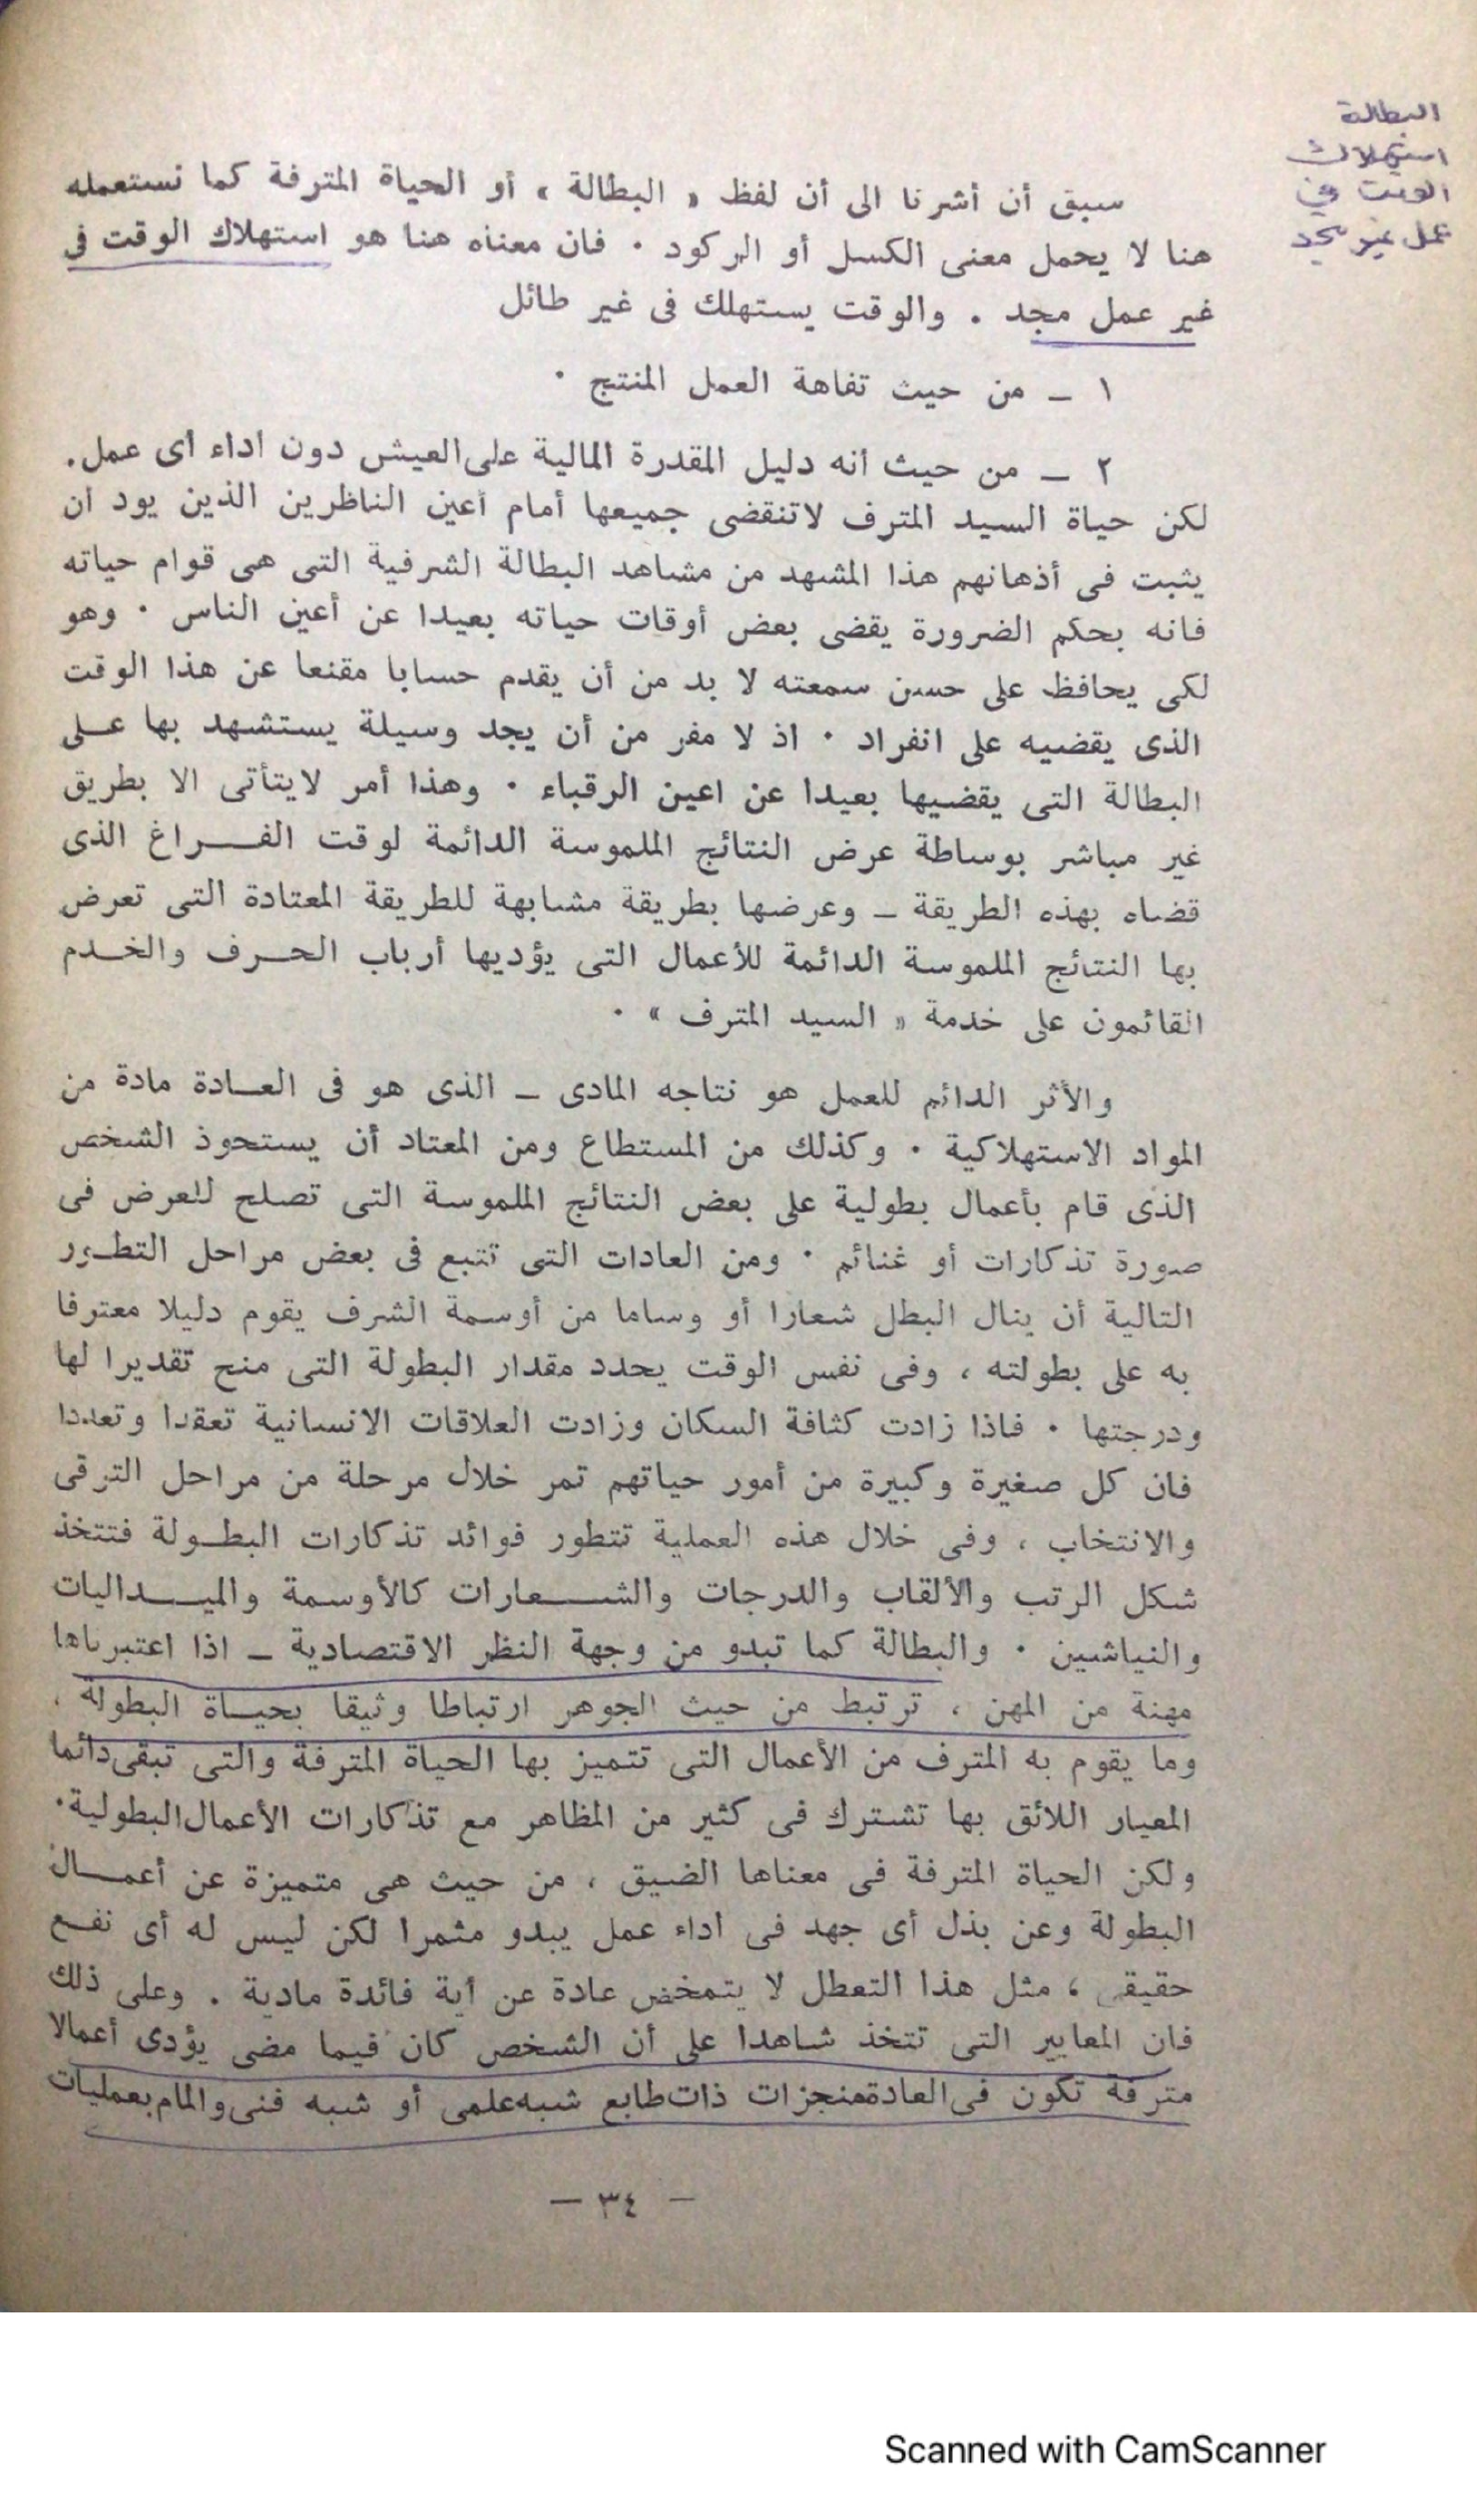 البطالة
استهلاك
الوقت في
عمل غير مجد
سبق أن أشرنا الى أن لفظ « البطالة » أو الحياة المترفة كما نستعمله
هنا لا يحمل معنى الكسل أو الركود ٠ فان معناه هنا هو استهلاك الوقت فى
غير عمل مجد . والوقت يستهلك فى غير طائل
١ ـ من حيث تفاهة العمل المنتج ٠
٢ ـ من حيث انه دليل المقدرة المالية على العيش دون اداء اى عمل.
لكن حياة السيد المترف لاتنقضى جميعها أمام أعين الناظرين الذين يود ان
يثبت فى أذهانهم هذا المشهد من مشاهد البطالة الشرفية التى هى قوام حياته
فانه بحكم الضرورة يقضى بعض أوقات حياته بعيدا عن أعين الناس ٠ وهو
لكى يحافظ على حسن سمعته لا بد من أن يقدم حسابا مقنعا عن هذا الوقت
الذى يقضيه على انفراد ٠ اذ لا مفر من أن يجد وسيلة يستشهد بها عـلى
البطالة التى يقضيها بعيدا عن اعين الرقباء ٠ وهذا أمر لايتأتى الا بطريق
غير مباشر بوساطة عرض النتائج الملموسة الدائمة لوقت الفــراغ الذى
قضاه بهذه الطريقة ـ وعرضها بطريقة مشابهة للطريقة المعتادة التى تعرض
بها النتائج الملموسة الدائمة للأعمال التى يؤديها أرباب الحـرف والخـدم
القائمون على خدمة « السيد المترف » ٠
والأثر الدائم للعمل هو نتاجه المادى ـ الذى هو فى العـادة مادة من
المواد الاستهلاكية ٠ وكذلك من المستطاع ومن المعتاد أن يستحوذ الشخص
الذى قام بأعمال بطولية على بعض النتائج الملموسة التى تصلح للعرض فى
صورة تذكارات أو غنائم ٠ ومن العادات التى تتبع فى بعض مراحل التطـور
التالية أن ينال البطل شعارا أو وساما من أوسمة الشرف يقوم دليلا معترفا
به على بطولته ، وفى نفس الوقت يحدد مقدار البطولة التى منح تقديرا لها
ودرجتها ٠ فاذا زادت كثافة السكان وزادت العلاقات الانسانية تعقدا وتعددا
فان كل صغيرة وكبيرة من أمور حياتهم تمر خلال مرحلة من مراحل الترقى
والانتخاب ، وفى خلال هذه العملية تتطور فوائد تذكارات البطـولة فتتخذ
شكل الرتب والألقاب والدرجات والشــعارات كالأوسمة والميــداليات
والنياشين ٠ والبطالة كما تبدو من وجهة النظر الاقتصادية ـ اذا اعتبرناها
مهنة من المهن ، ترتبط من حيث الجوهر ارتباطا وثيقا بحيـاة البطولة ،
وما يقوم به المترف من الأعمال التى تتميز بها الحياة المترفة والتى تبقى دائما
المعيار اللائق بها تشترك فى كثير من المظاهر مع تذكارات الأعمال البطولية٠
ولكن الحياة المترفة فى معناها الضيق ، من حيث هى متميزة عن أعمـال
البطولة وعن بذل أى جهد فى اداء عمل يبدو مثمرا لكن ليس له أى نفـع
حقيقى ، مثل هذا التعطل لا يتمخض عادة عن أية فائدة مادية . وعلى ذلك
فان المعايير التى تتخذ شاهدا على أن الشخص كان فيما مضى يؤدى أعمالا
مترفة تكون فى العادة منجزات ذات طابع شبه علمى أو شبه فنى والمام بعمليات
ـ ٣٤ ـ
Scanned with CamScanner